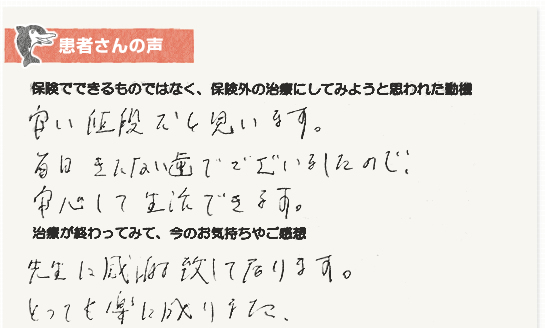 患者さんの声
保険でできるものではなく、保険外の治療にしてみようと思われた動機
安い値段だと思います。
毎日きたない歯でございましたので、
安心して生活できます。
治療が終わってみて、今のお気持ちやご感想
先生に感謝致して居ります。
とっても楽に成りました、